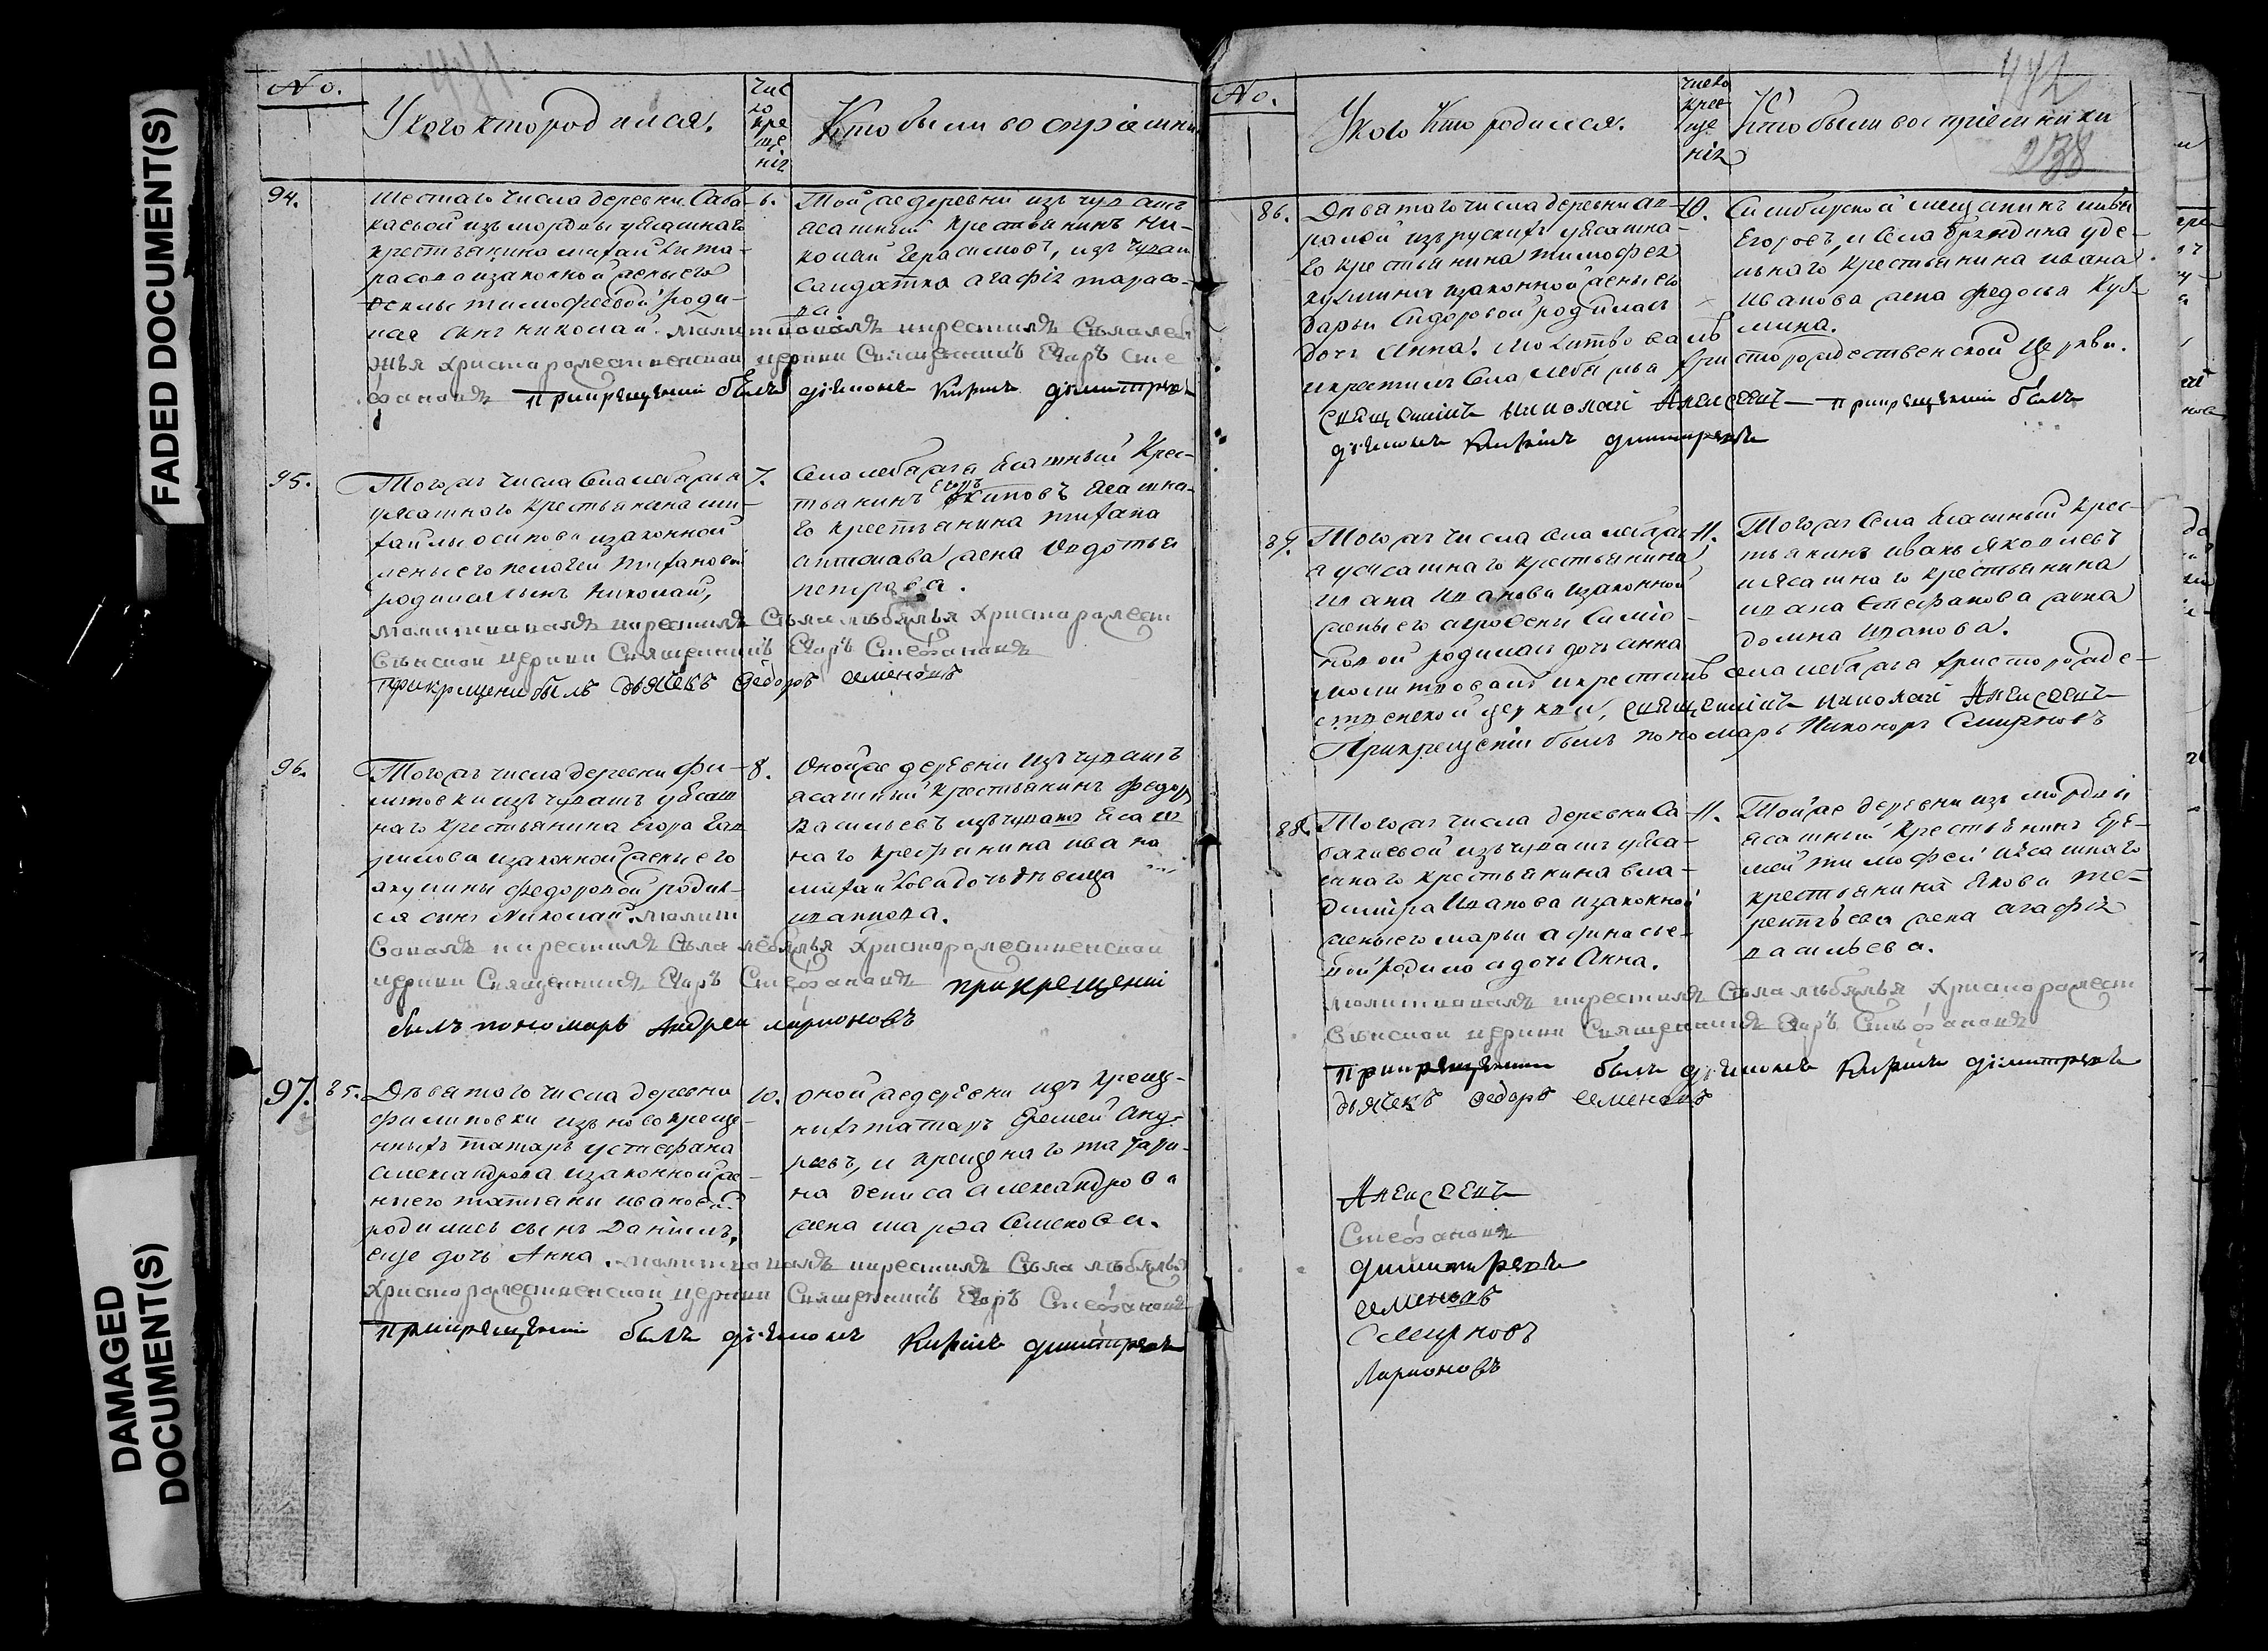 FADED DOCUMENT(S)
DAMAGED
DOCUMENT(S)
441
No.
У кого кто родился.
Чис
ло
кре
ще
нія
Кто были воспріемни
94.
Шестаго числа деревни Саба
каевой изъ мордвы уясашнаго
крестьянина михайлы та-
расова изаконной жены его
феклы тимофеевой роди-
лся сынъ николай. молитвовалъ икрестилъ Села леб
яжья христорождественской церкви Священникъ Егоръ Сте
фановъ прикрещеніи былъ діяконъ Кирилъ димитрев
6.
Той же деревни изъ чувашъ
ясашный крестьянинъ ни-
колай герасимовъ, изъ чуваш
салдатка агафія тарасо-
ва
95.
Тогожъ числа Села лебяжья
уясашного крестьянина ми-
хайлы осипова изаконной
жены его пелагеи
родился сынъ николай,
молитвовалъ икрестилъ Села лебяжья христорождест
венской церкви Священникъ Егоръ Стефановъ
прикрещени былъ дьячекъ Федоръ семеновъ
7.
Села лебяжья ясашный Крес-
тьянинъ осиповъ ясашна-
го крестьянина
антонова жена авдотья
петрова.
96.
Тогожъ числа деревни фи-
липовки изъ чувашъ уясаш
наго крестьянина Егора гав
рилова изаконной жены его
акулины федоровой родил-
ся сынъ Николай. молит
вовалъ икрестилъ Села лебяжья христорождественской
церкви Священникъ Егоръ Стефановъ прикрещеніи
былъ пономарь Андреи ларионовъ
8.
Оной же деревни изъ чувашъ
ясашный крестьянинъ федоръ
васильевъ изъ чувашъ ясаш
наго крестьянина ивана
михайлова дочь девица
иванова.
97. 85.
Деватого числа деревни
филиповки изъ новокреще-
нныхъ татаръ устефана
александрова изаконной же-
ны его татианы ивановой
родились сынъ Даниилъ,
еще дочь Анна. молитвовалъ икрестилъ Села лебяжья
христорождественской церкви Священникъ Егоръ Стефановъ
прикрещеніи былъ діяконъ Кирилъ димитревъ
10.
оной же деревни изъ креще-
ныхъ татаръ Еремей Анд-
реевъ, и крещенаго татари-
на дениса александрова
жена марфа Семенова.
442
238
No.
У кого Кто родился.
число
крес
ще
нія
Кто были воспріемники
86.
Деватого числа деревни ав-
раловой изъ рускихъ уясашна-
го крестьянина тимофея
кузмина изаконной жены его
дарьи Сидоровой родилась
дочь Анна. молитвовалъ
икрестилъ Села лебяжья христорождественской Церкви.
священникъ николай Алексеевъ прикрещеніи былъ
діяконъ Кирилъ димитревъ
10.
Симбирской мещанинъ
Егоровъ, и села бряндина уде-
льнаго крестьянина ивана
иванова жена федосья Куз-
мина.
87.
Тогожъ числа села лебяжь
я уясашнаго крестьянина
ивана иванова изаконной
жены его аграфены Симіо-
новой родилась дочь анна
молитвовалъ икрестилъ села лебяжья христорожде-
ственской церкви, священникъ николай Алексеевъ
Прикрещеніи былъ пономарь Никоноръ Смирновъ
11.
Тогожъ Села ясашный крес-
тьянинъ иванъ яковлевъ
и ясашнаго крестьянина
ивана Стефанова жена
домна иванова.
88.
Тогожъ числа деревни Са-
бакаевой изъ чувашъ уяса-
шнаго крестьянина вла-
димира иванова изаконной
жены его марьи афанасье-
вой родилась дочь Анна.
молитвовалъ икрестилъ Села лебяжья христорождест
венской церкви Священникъ Егоръ Стефановъ
прикрещеніи былъ діяконъ Кирилъ димитревъ
дьячекъ Федоръ семеновъ
11.
Той же деревни изъ мордвы
ясашный крестьянинъ Ере-
мей тимофеи иясашнаго
крестьянина якова те-
рентьева жена агафія
васильева.
Алексеевъ
Стефановъ
димитревъ
семеновъ
Смирновъ
Ларионовъ